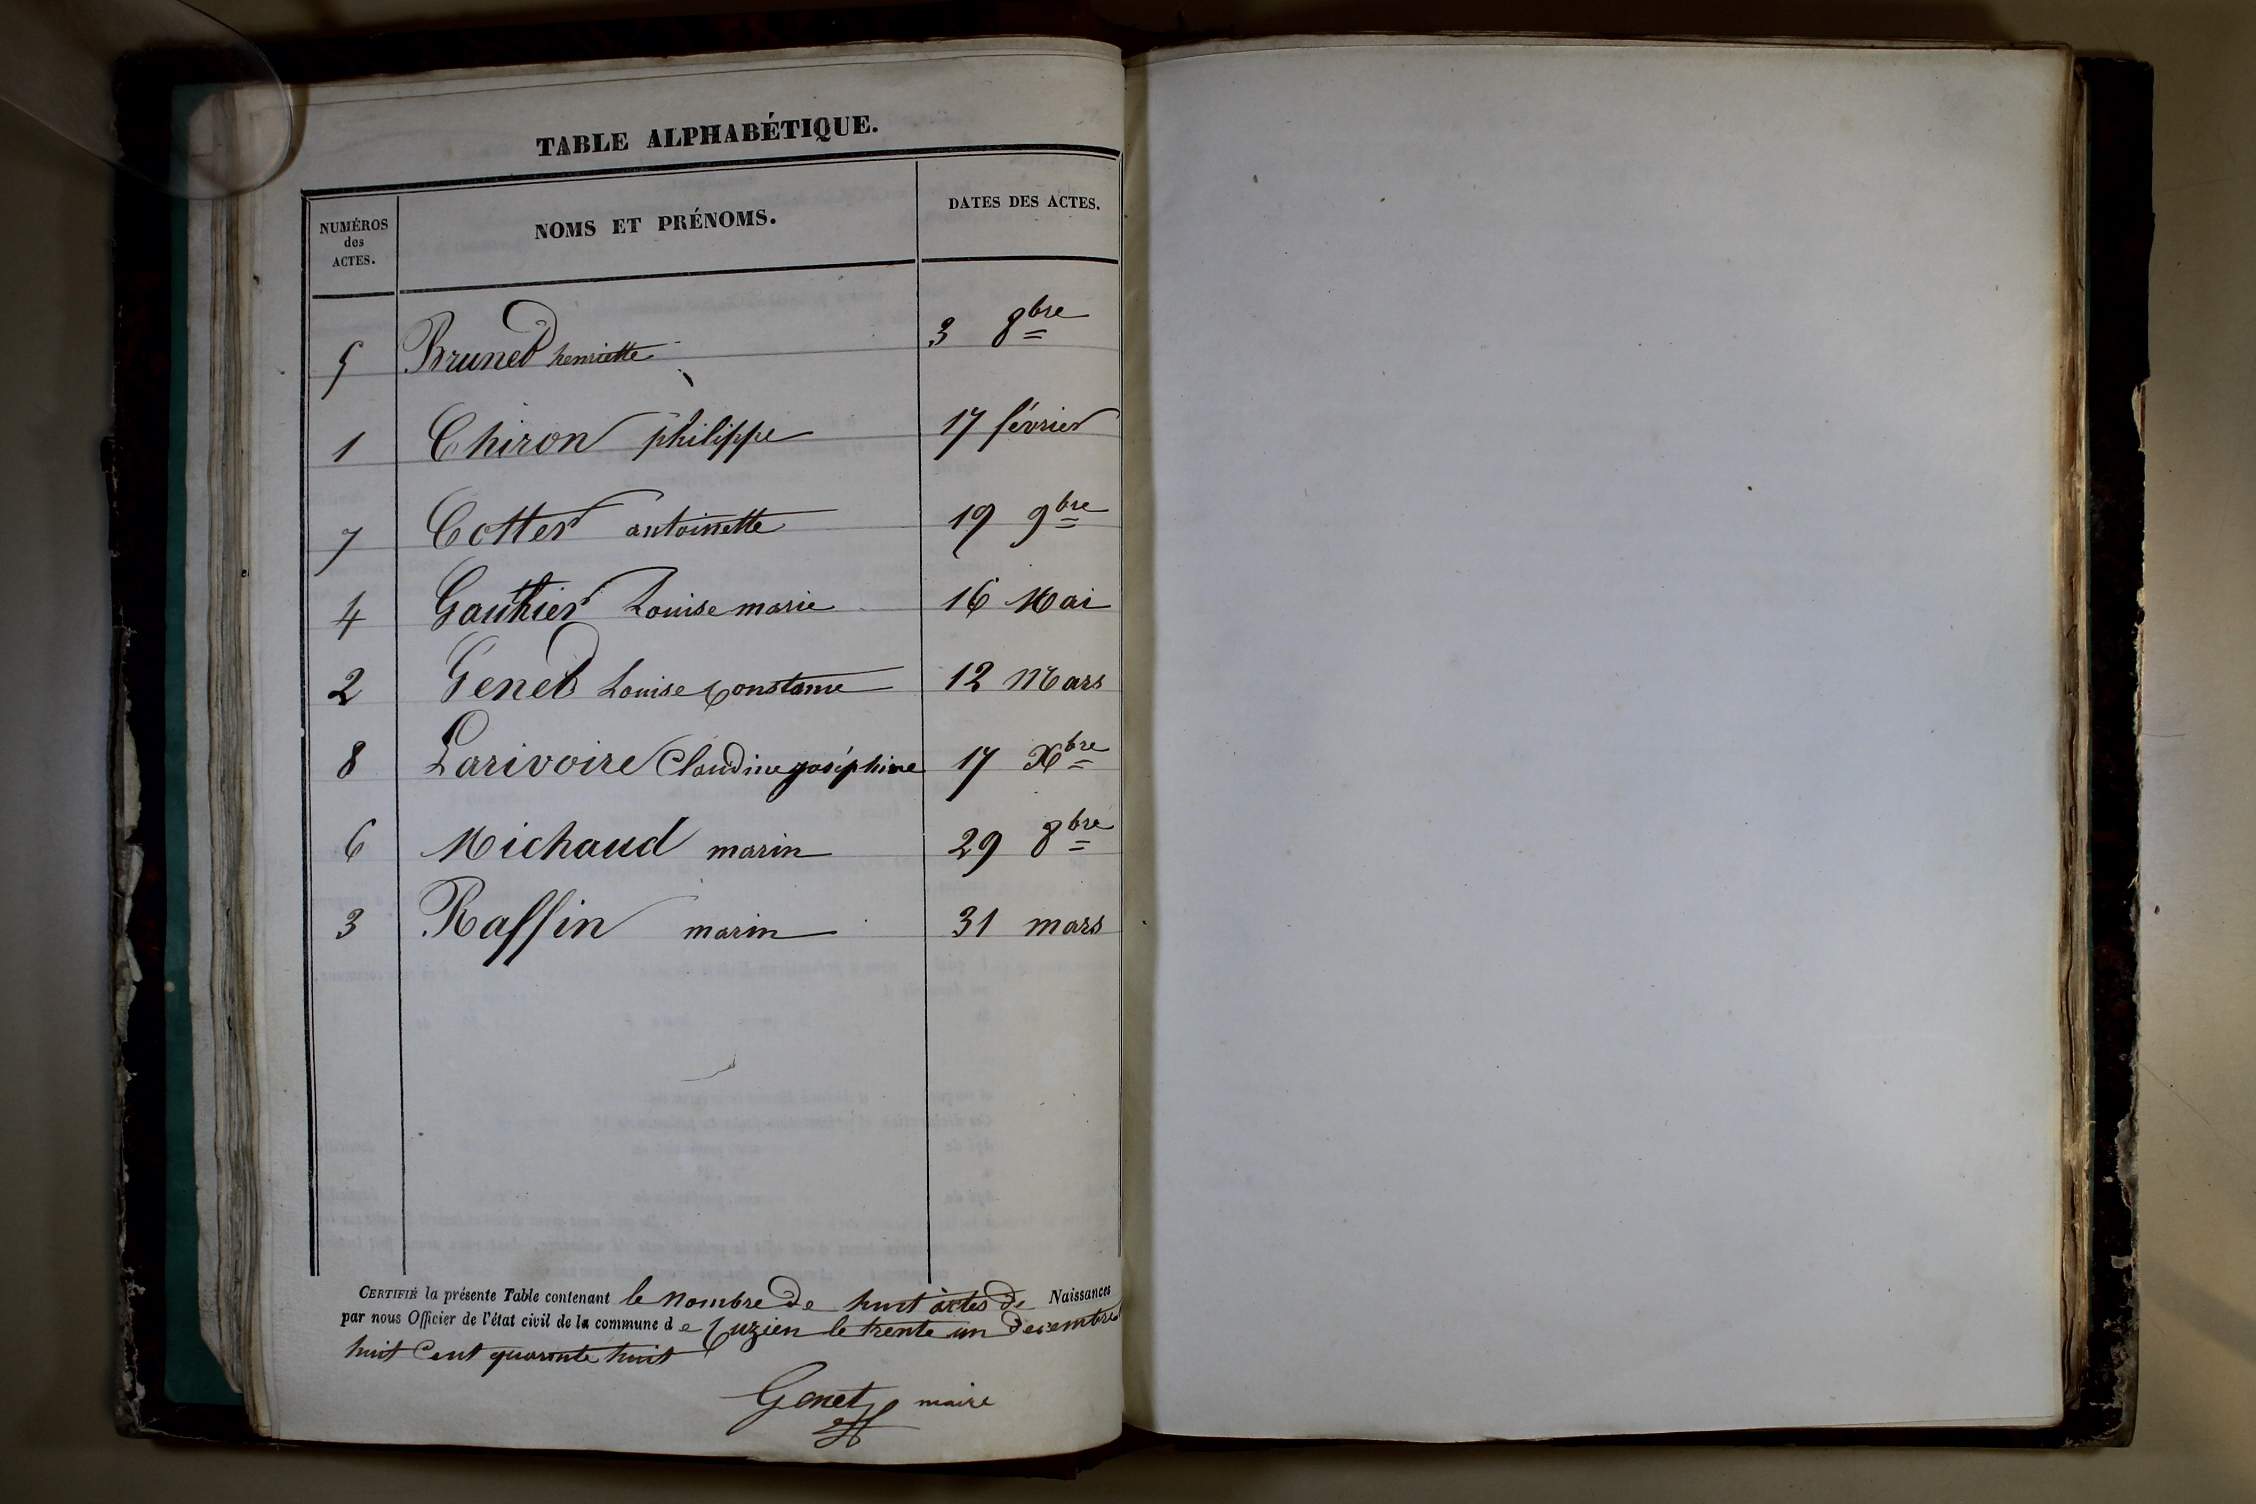 TABLE ALPHABÉTIQUE.
NUMÉROS des ACTES. NOMS ET PRÉNOMS. DATES DES ACTES.
5 Brunet henriette 3 8bre
1 Chiron philippe 17 février
7 Cotter antoinette 19 9bre
4 Gauthier Louise marie 16 Mai
2 Genet Louise Constance 12 Mars
8 Larivoire Claudine joséphine 17 Xbre
6 Michaud marin 29 8bre
3 Raffin marin 31 mars
CERTIFIÉ la présente Table contenant le nombre de huit actes de Naissances
par nous Officier de l'état civil de la commune de Cuzieu le trente un Decembre
huit Cent quarante huit
Genet maire